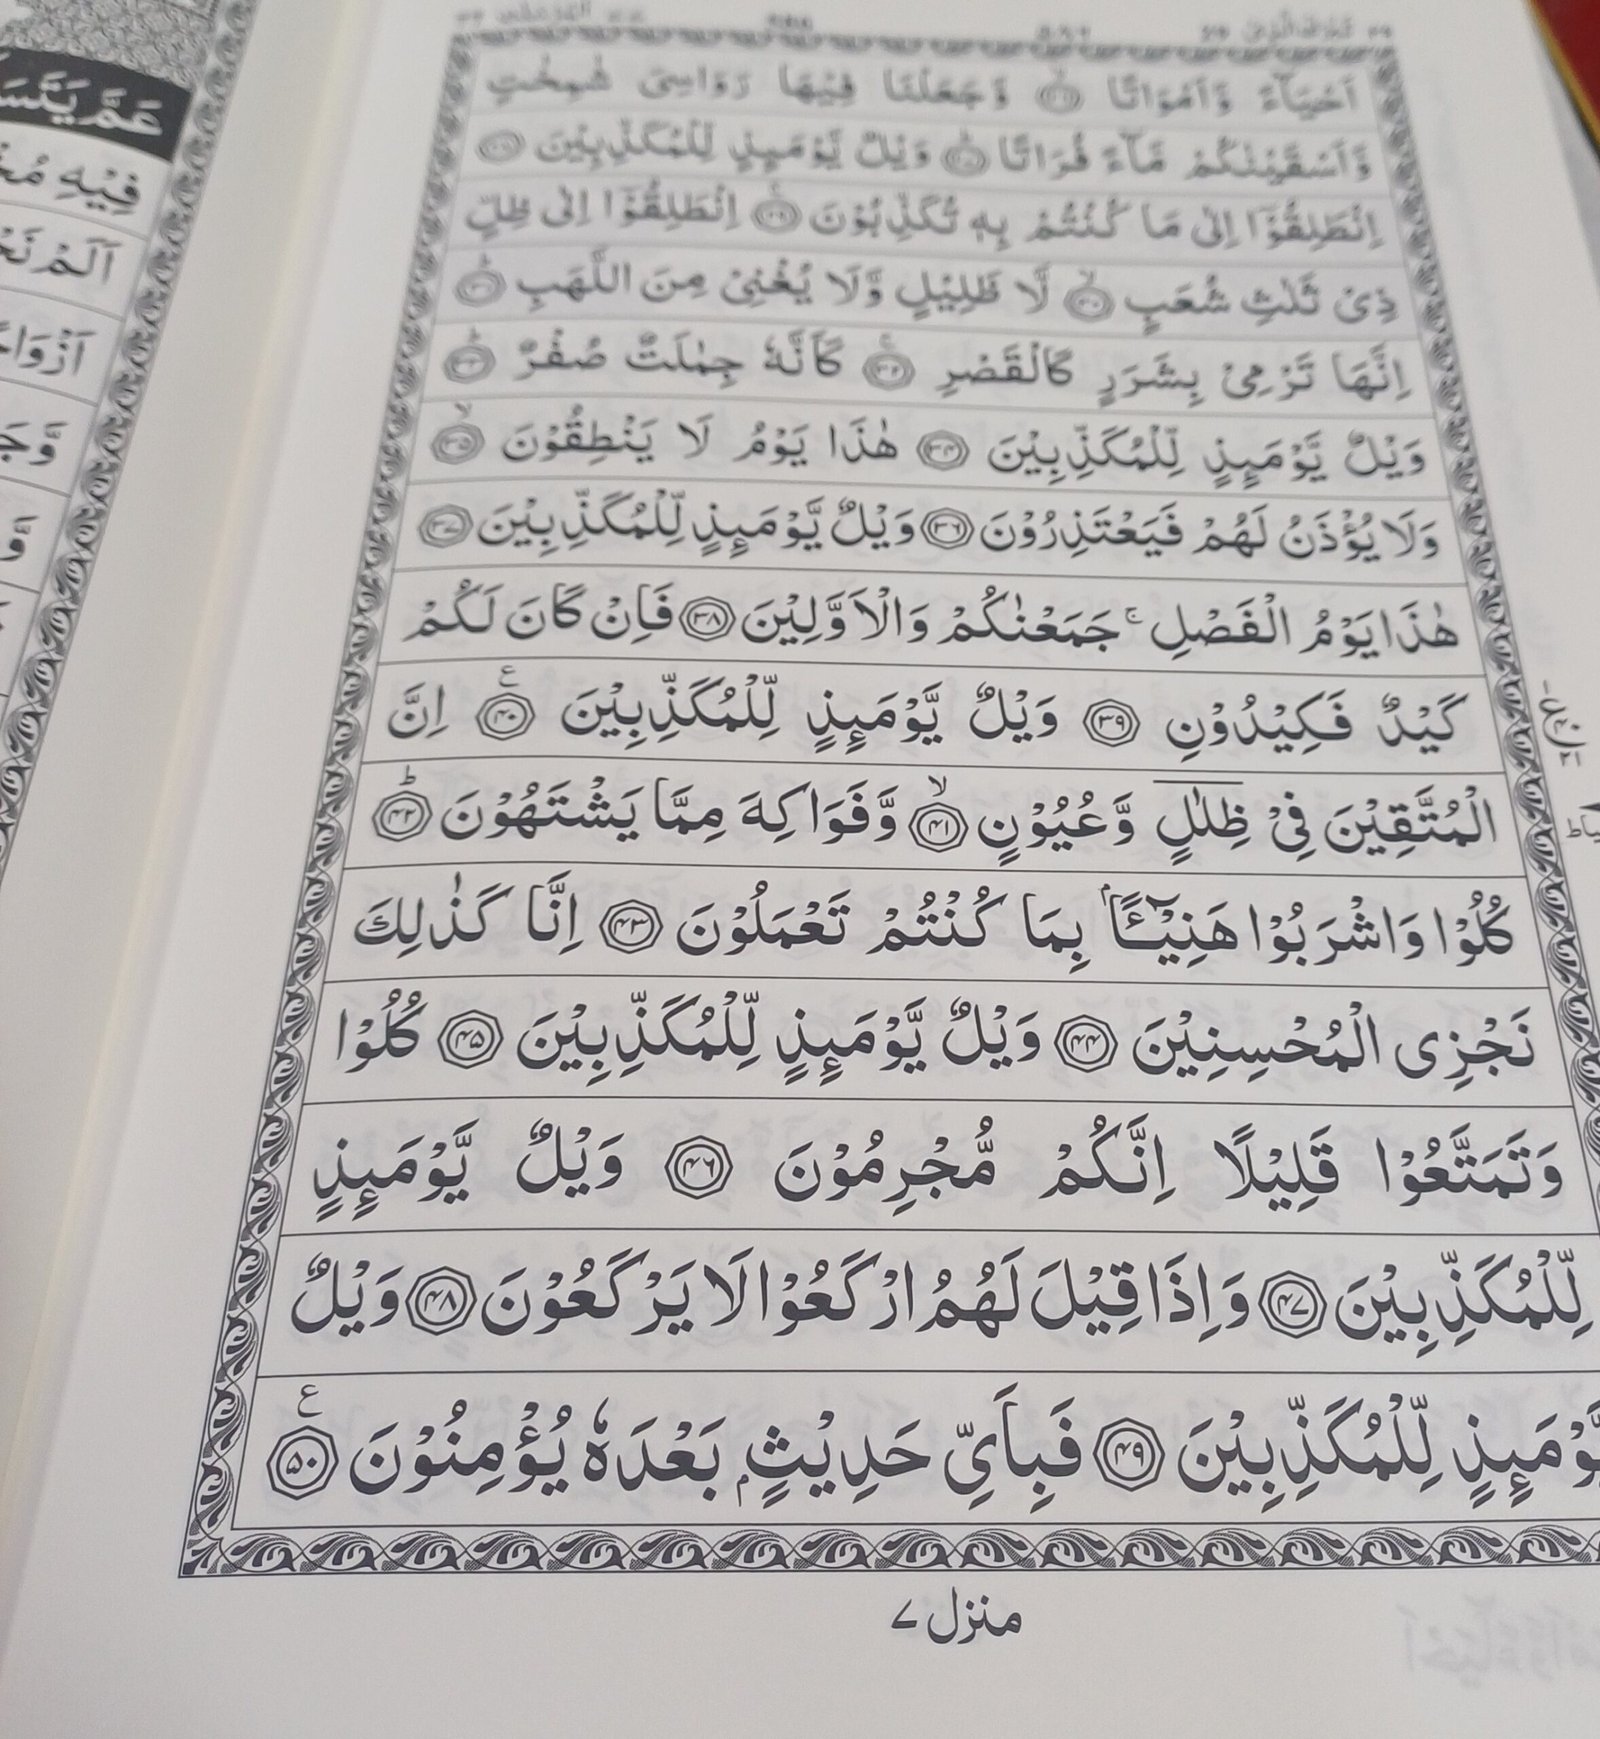 اَحْيَآءً وَّاَمْوَاتًا ﴿۲۶﴾ وَّجَعَلْنَا فِيْهَا رَوَاسِيَ شٰمِخٰتٍ
وَّاَسْقَيْنٰكُمْ مَّآءً فُرَاتًا ﴿۲۷﴾ وَيْلٌ يَّوْمَىِٕذٍ لِّلْمُكَذِّبِيْنَ ﴿۲۸﴾
اِنْطَلِقُوْۤا اِلٰى مَا كُنْتُمْ بِهٖ تُكَذِّبُوْنَ ﴿۲۹﴾ اِنْطَلِقُوْۤا اِلٰى ظِلٍّ
ذِيْ ثَلٰثِ شُعَبٍ ﴿۳۰﴾ لَّا ظَلِيْلٍ وَّلَا يُغْنِيْ مِنَ اللَّهَبِ ﴿۳۱﴾
اِنَّهَا تَرْمِيْ بِشَرَرٍ كَالْقَصْرِ ﴿۳۲﴾ كَاَنَّهٗ جِمٰلَتٌ صُفْرٌ ﴿۳۳﴾
وَيْلٌ يَّوْمَىِٕذٍ لِّلْمُكَذِّبِيْنَ ﴿۳۴﴾ هٰذَا يَوْمُ لَا يَنْطِقُوْنَ ﴿۳۵﴾
وَلَا يُؤْذَنُ لَهُمْ فَيَعْتَذِرُوْنَ ﴿۳۶﴾ وَيْلٌ يَّوْمَىِٕذٍ لِّلْمُكَذِّبِيْنَ ﴿۳۷﴾
هٰذَا يَوْمُ الْفَصْلِ ۚ جَمَعْنٰكُمْ وَالْاَوَّلِيْنَ ﴿۳۸﴾ فَاِنْ كَانَ لَكُمْ
كَيْدٌ فَكِيْدُوْنِ ﴿۳۹﴾ وَيْلٌ يَّوْمَىِٕذٍ لِّلْمُكَذِّبِيْنَ ﴿۴۰﴾ اِنَّ
الْمُتَّقِيْنَ فِيْ ظِلٰلٍ وَّعُيُوْنٍ ﴿۴۱﴾ وَّفَوَاكِهَ مِمَّا يَشْتَهُوْنَ ﴿۴۲﴾
كُلُوْا وَاشْرَبُوْا هَنِيْٓـًٔۢا بِمَا كُنْتُمْ تَعْمَلُوْنَ ﴿۴۳﴾ اِنَّا كَذٰلِكَ
نَجْزِى الْمُحْسِنِيْنَ ﴿۴۴﴾ وَيْلٌ يَّوْمَىِٕذٍ لِّلْمُكَذِّبِيْنَ ﴿۴۵﴾ كُلُوْا
وَتَمَتَّعُوْا قَلِيْلًا اِنَّكُمْ مُّجْرِمُوْنَ ﴿۴۶﴾ وَيْلٌ يَّوْمَىِٕذٍ
لِّلْمُكَذِّبِيْنَ ﴿۴۷﴾ وَاِذَا قِيْلَ لَهُمُ ارْكَعُوْا لَا يَرْكَعُوْنَ ﴿۴۸﴾ وَيْلٌ
يَّوْمَىِٕذٍ لِّلْمُكَذِّبِيْنَ ﴿۴۹﴾ فَبِاَيِّ حَدِيْثٍۭ بَعْدَهٗ يُؤْمِنُوْنَ ﴿۵۰﴾
منزل ۷